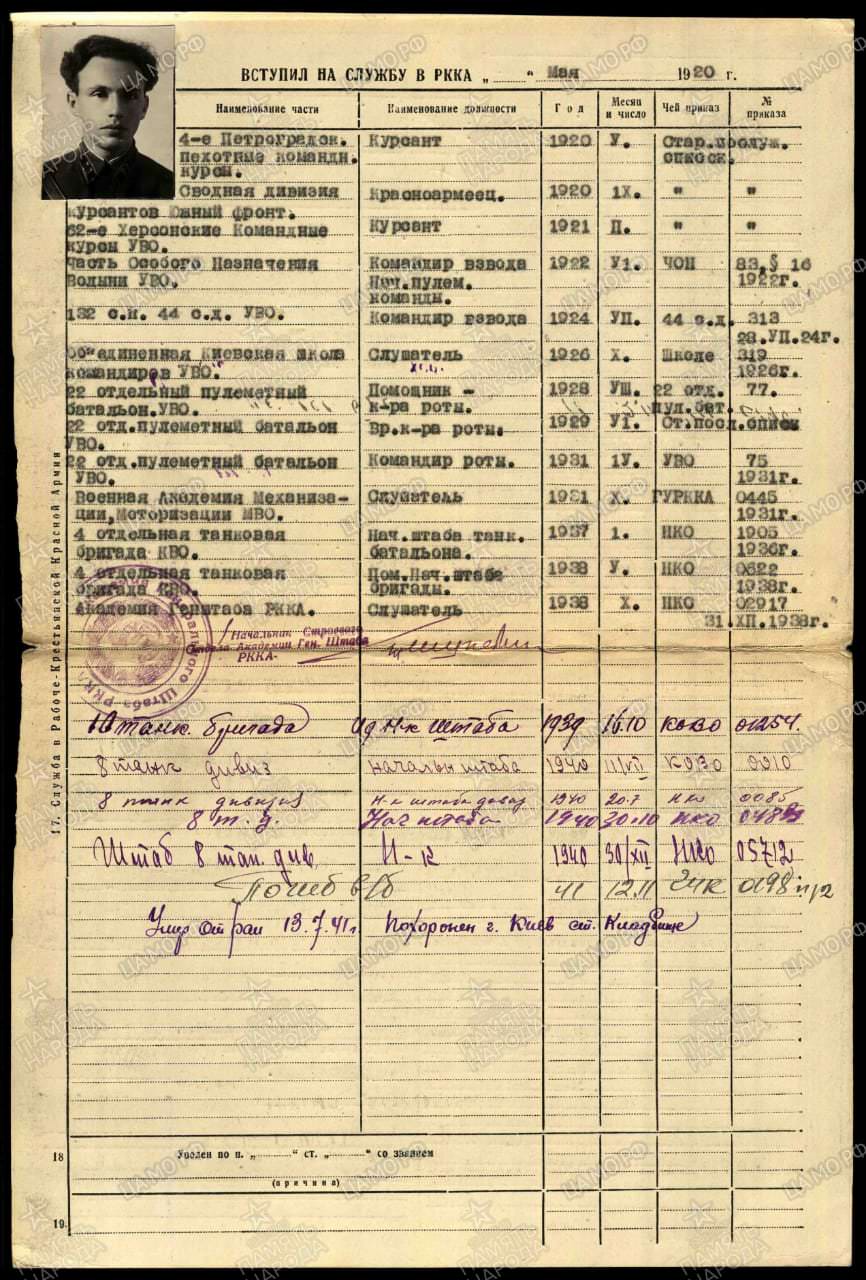 ВСТУПИЛ НА СЛУЖБУ В РККА „ “ Мая 1920 г.
Наименование части Наименование должности Год Месяц и число Чей приказ № приказа
4-е Петроградск. Курсант 1920 У. Стар.послуж.
пехотные командн. списск.
курсы.
Сводная дивизия Красноармеец. 1920 1Х. " "
курсантов Южный фронт.
62-е Херсонские Командные Курсант 1921 П. " "
курсы УВО.
Часть Особого Назначения Командир взвода 1922 У1. ЧОН 83,§ 16
Волыни УВО. Нач.пулем. 1922г.
команды.
132 с.п. 44 с.д. УВО. Командир взвода 1924 УП. 44 с.д. 313
28.УП.24г.
Об"единенная Киевская школа Слушатель 1926 Х. Школе 319
командиров УВО. 1926г.
22 отдельный пулеметный Помощник - 1928 УШ. 22 отд. 77.
батальон.УВО. к-ра роты. пул.бат.
22 отд.пулеметный батальон Вр.к-ра роты. 1929 У1. Ст.посл.списы
УВО.
22 отд.пулеметный батальон Командир роты. 1931 1У. УВО 75
УВО. 1931г.
Военная Академия Механиза- Слушатель 1931 Х. ГУРККА 0445
ции,Моторизации МВО. 1931г.
4 отдельная танковая Нач.штаба танк. 1937 1. НКО 1905
бригада КВО. батальона. 1936г.
4 отдельная танковая Пом.Нач.штаба 1938 У. НКО 0622
бригада КВО. бригады. 1938г.
Академия Генштаба РККА. Слушатель 1938 Х. НКО 02917
31.ХП.1938г.
Начальник Строевого
Отдела Академии Ген. Штаба
РККА-
10 танк. бригада Ид Н-к Штаба 1939 16.10 КОВО 01254.
8 танк дивиз началын штаба 1940 11/VII КОВО 0010
8 танк дивизия Н-к штаба 1940 20.7 НКО 0085
8 т. д. Нач штаба 1940 30.10 НКО
Штаб 8 тан. див Н-к 1940 30/XII НКО 05712
Погиб в/б 41 12.11 ГУК 0198 п/2
Умер от ран 13.7.41г. Похоронен г. Киев ст. Кладбище
17. Служба в Рабоче-Крестьянской Красной Армии
18 Уволен по п. „ “ ст. „ “ со званием
(причина)
19.
ЦАМО РФ
ПАМЯТЬ НАРОДА